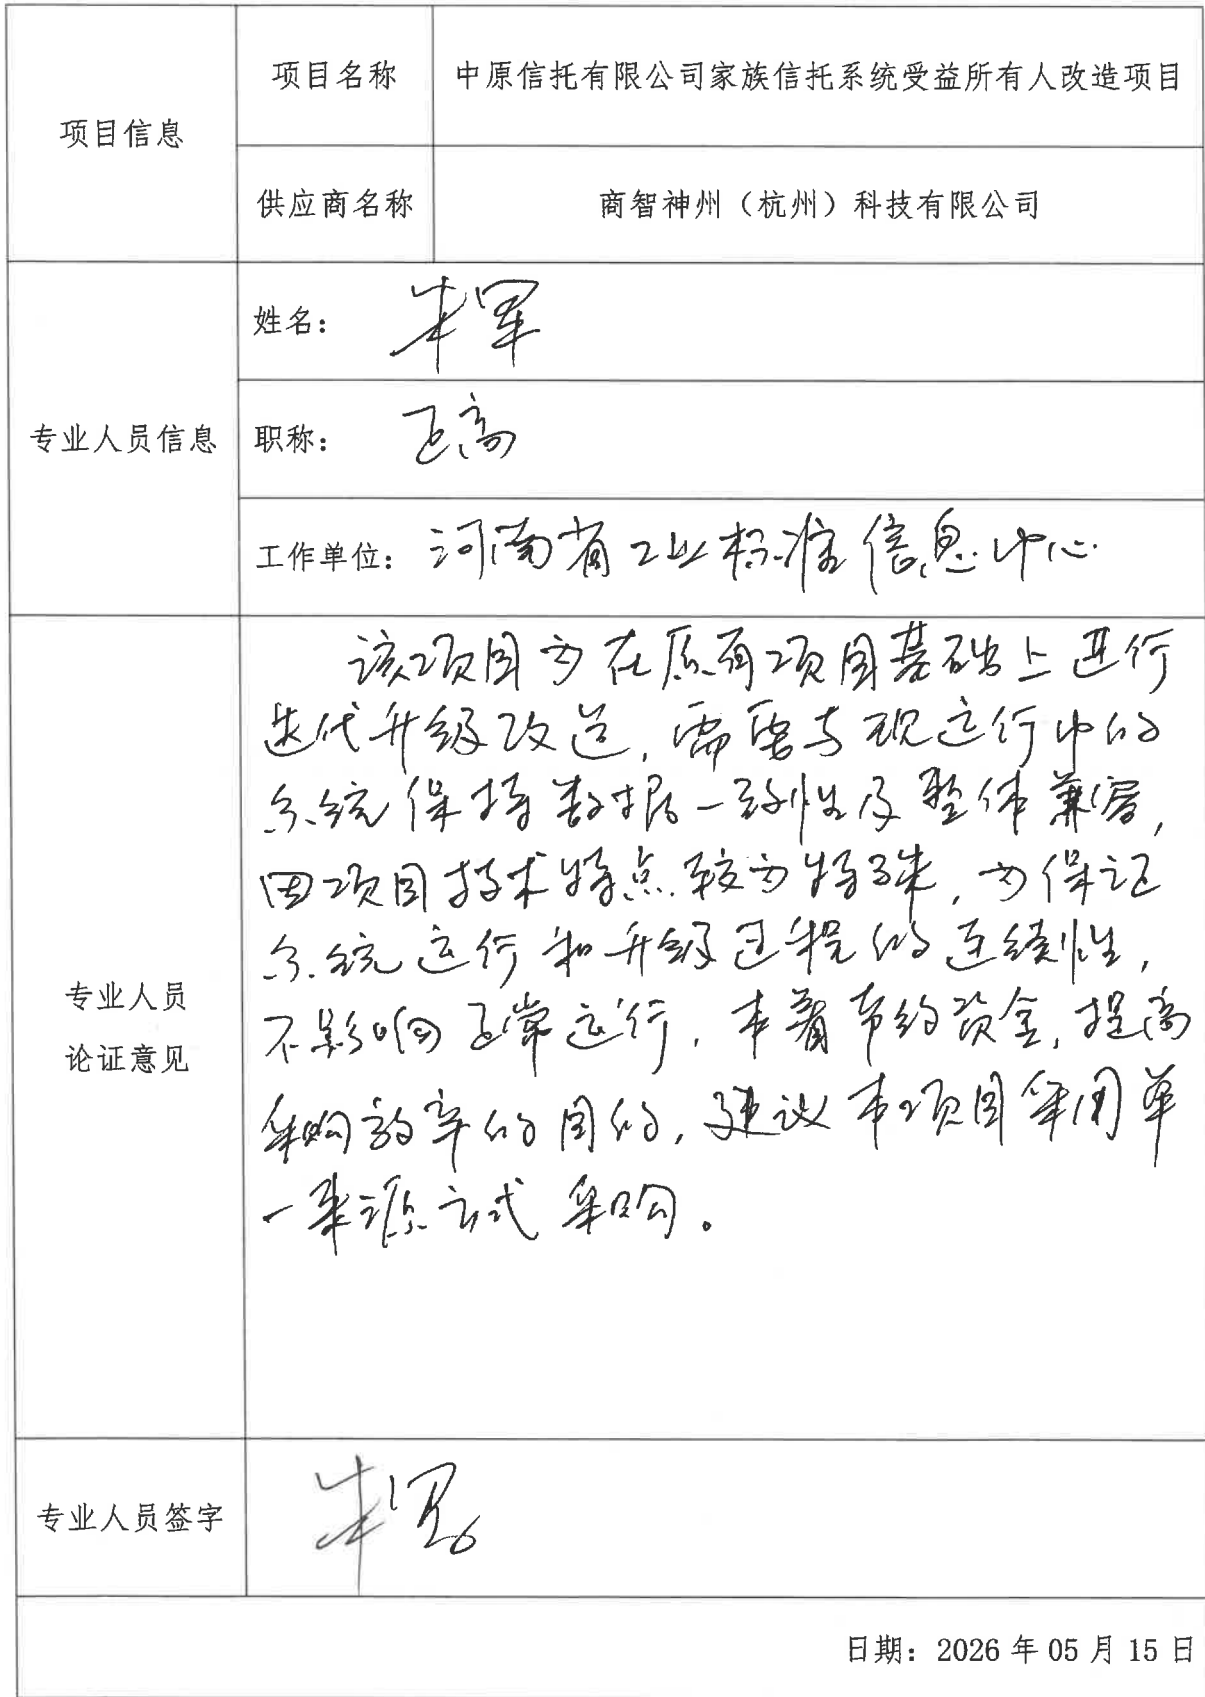 项目信息
项目名称
中原信托有限公司家族信托系统受益所有人改造项目
供应商名称
商智神州（杭州）科技有限公司
专业人员信息
姓名：
职称：正高
工作单位：河南省工业标准信息中心
专业人员
论证意见
该项目为在原有项目基础上进行
迭代升级改造，需要与现运行中的
系统保持数据一致性及整体兼容，
因项目技术特点较为特殊，为保证
系统运行和升级过程的连续性，
不影响正常运行，本着节约资金，提高
采购效率的目的，建议本项目采用单
一来源方式采购。
专业人员签字
日期：2026 年 05 月 15 日